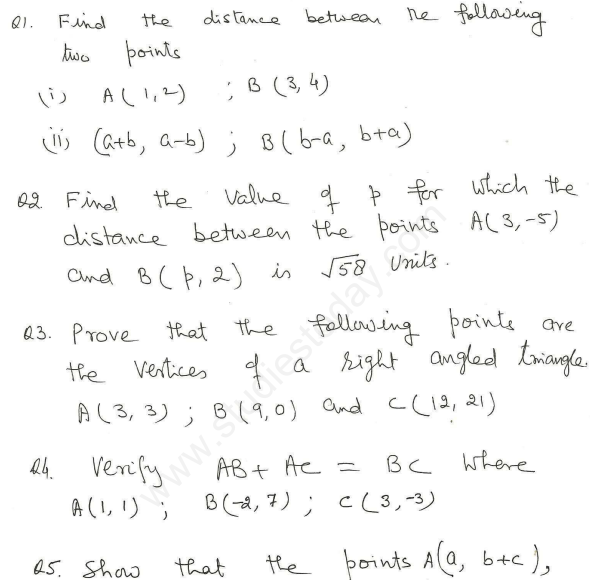 Q1. Find the distance between the following
two points
(i) A(1,2) ; B(3,4)
(ii) (a+b, a-b) ; B(b-a, b+a)
Q2. Find the value of p for which the
distance between the points A(3,-5)
and B(p,2) is √58 Units.
Q3. Prove that the following points are
the vertices of a right angled triangle.
A(3,3) ; B(9,0) and C(12,21)
Q4. Verify AB + AC = BC Where
A(1,1) ; B(-2,7) ; C(3,-3)
Q5. Show that the points A(a, b+c),
www.studiestoday.com